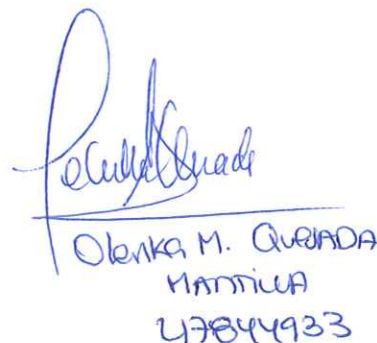 Olenka M. QUEJADA
MANTILLA
47844933